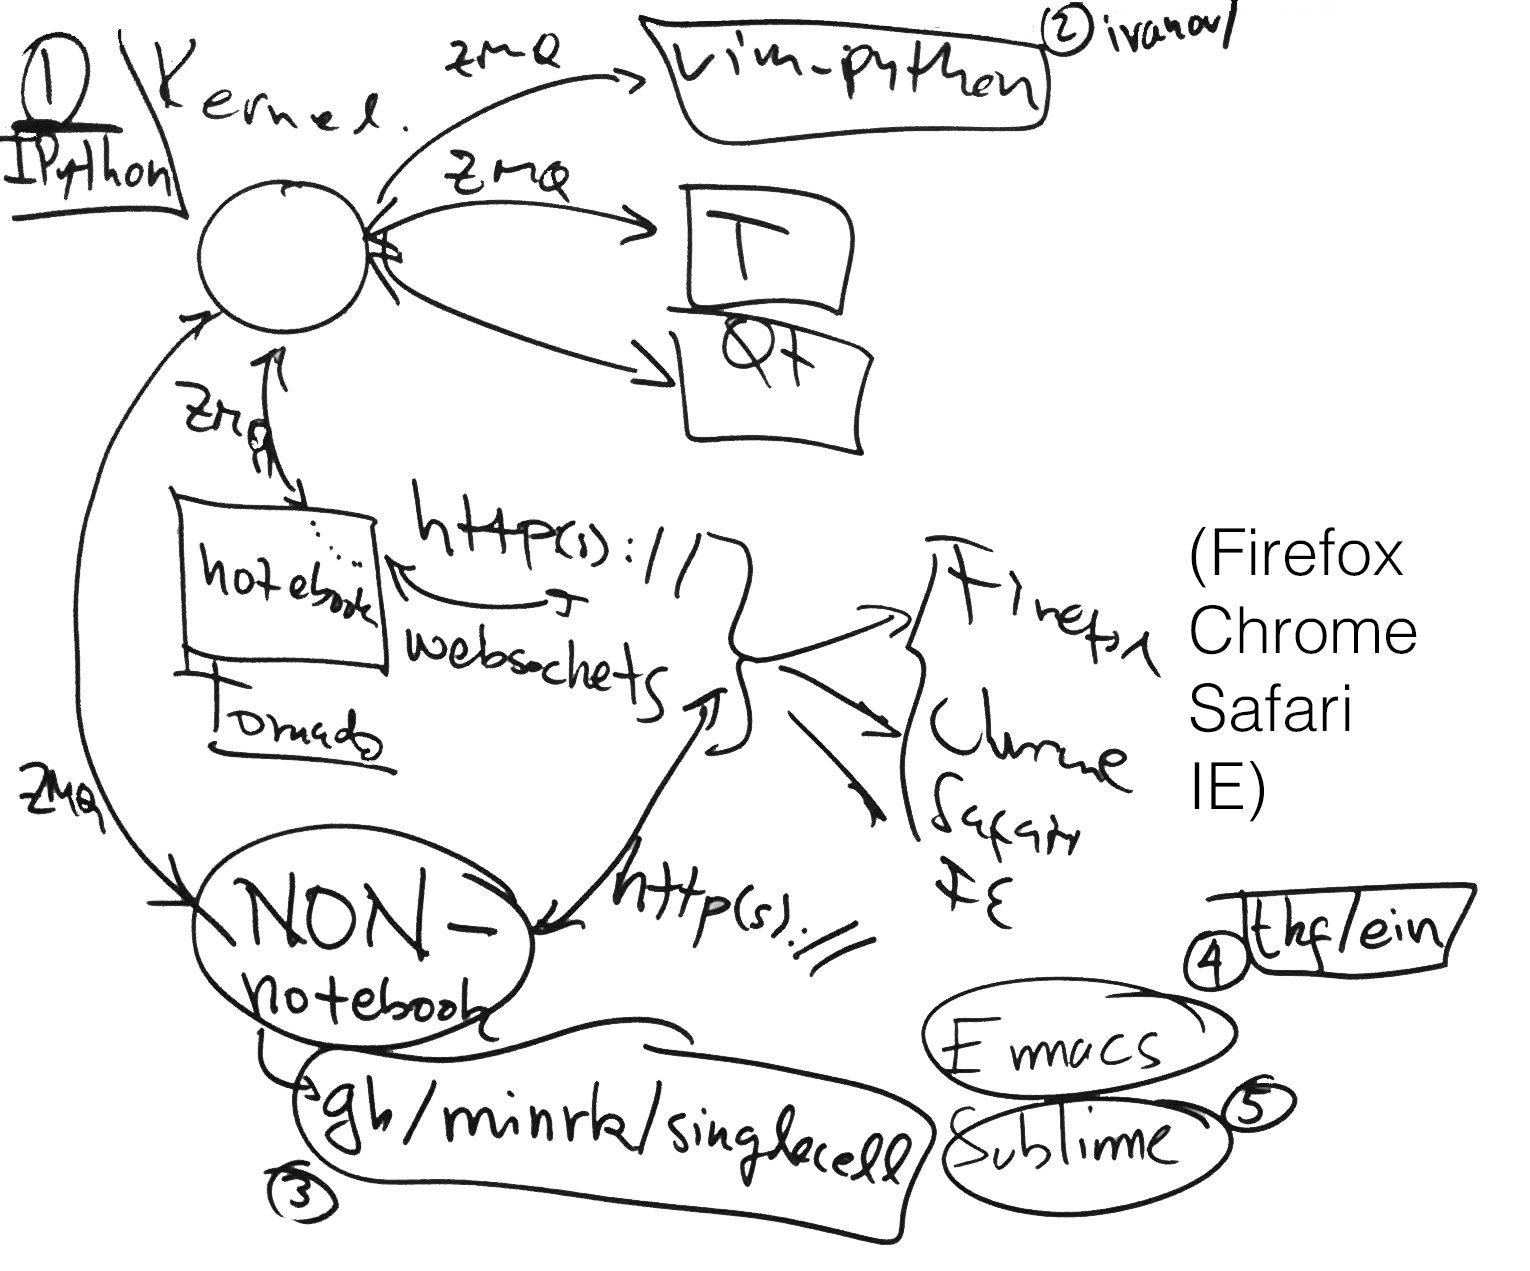 1
IPython
Kernel.
ZMQ
vim-python
2 ivanov/
ZMQ
T
Qt
ZMQ
notebook
Tornado
http(s)://
websockets
Firefox
Chrome
Safari
IE
(Firefox
Chrome
Safari
IE)
ZMQ
NON-
notebook
http(s)://
gh/minrk/singlecell
3
4
tkf/ein
Emacs
Sublime
5